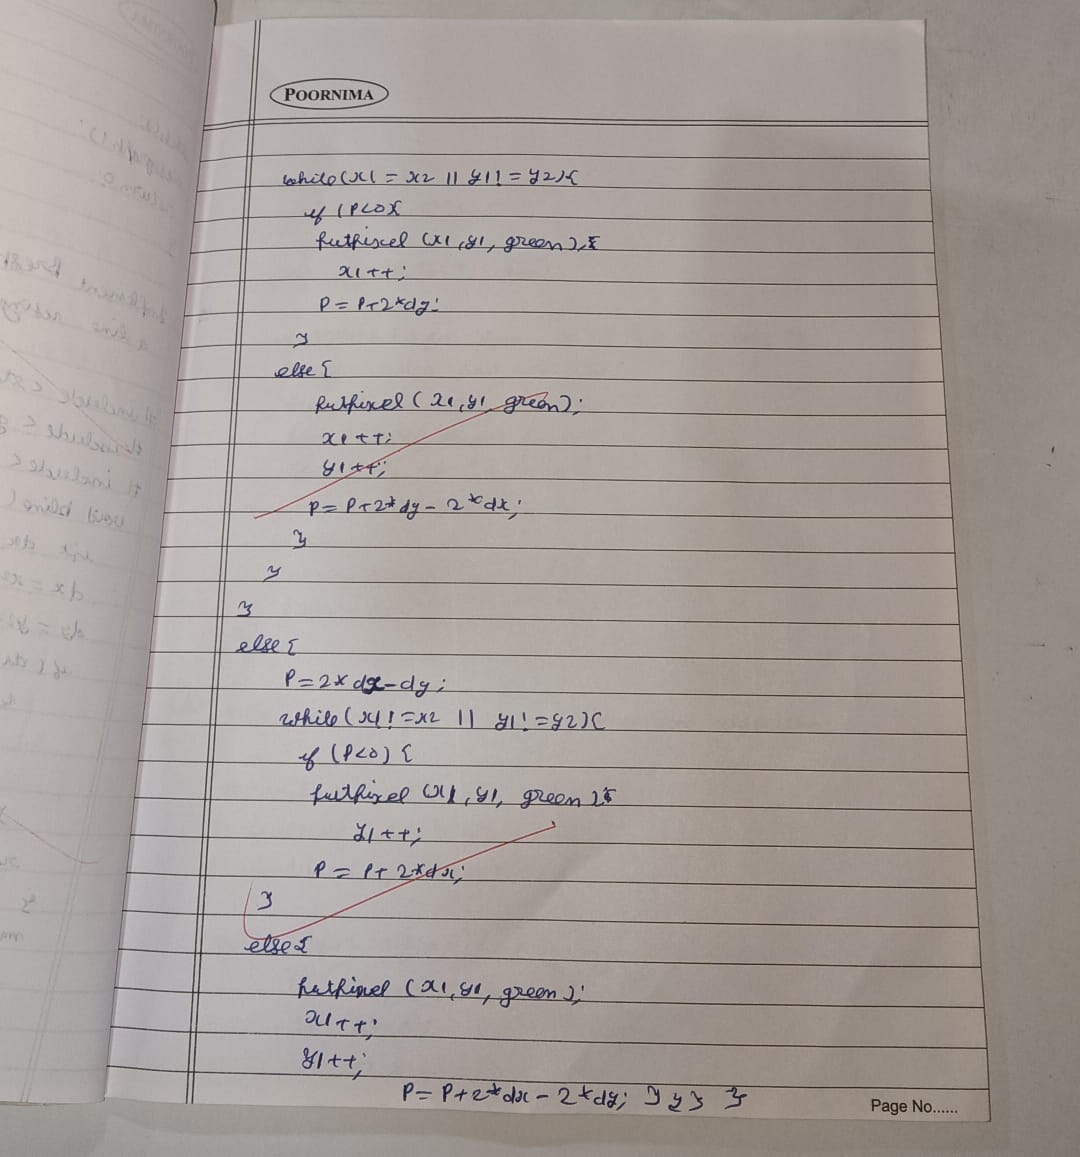 POORNIMA
while(x1 = x2 || y1! = y2){
if (P<0){
putpixel (x1, y1, green);
x1++;
P = P+2*dy;
}
else {
putpixel (x1, y1, green);
x1++;
y1++;
P = P+2*dy - 2*dx;
}
}
}
else {
P = 2*dx-dy;
while (x1! = x2 || y1! = y2){
if (P<0) {
putpixel (x1, y1, green);
y1++;
P = P+ 2*dx;
}
else {
putpixel (x1, y1, green);
x1++;
y1++;
P = P+2*dx - 2*dy; } } } }
Page No......